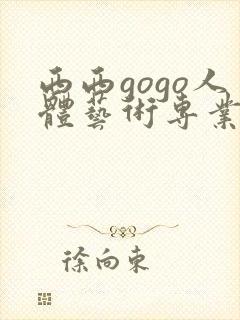 西西gogo人
體藝術專業
徐向東